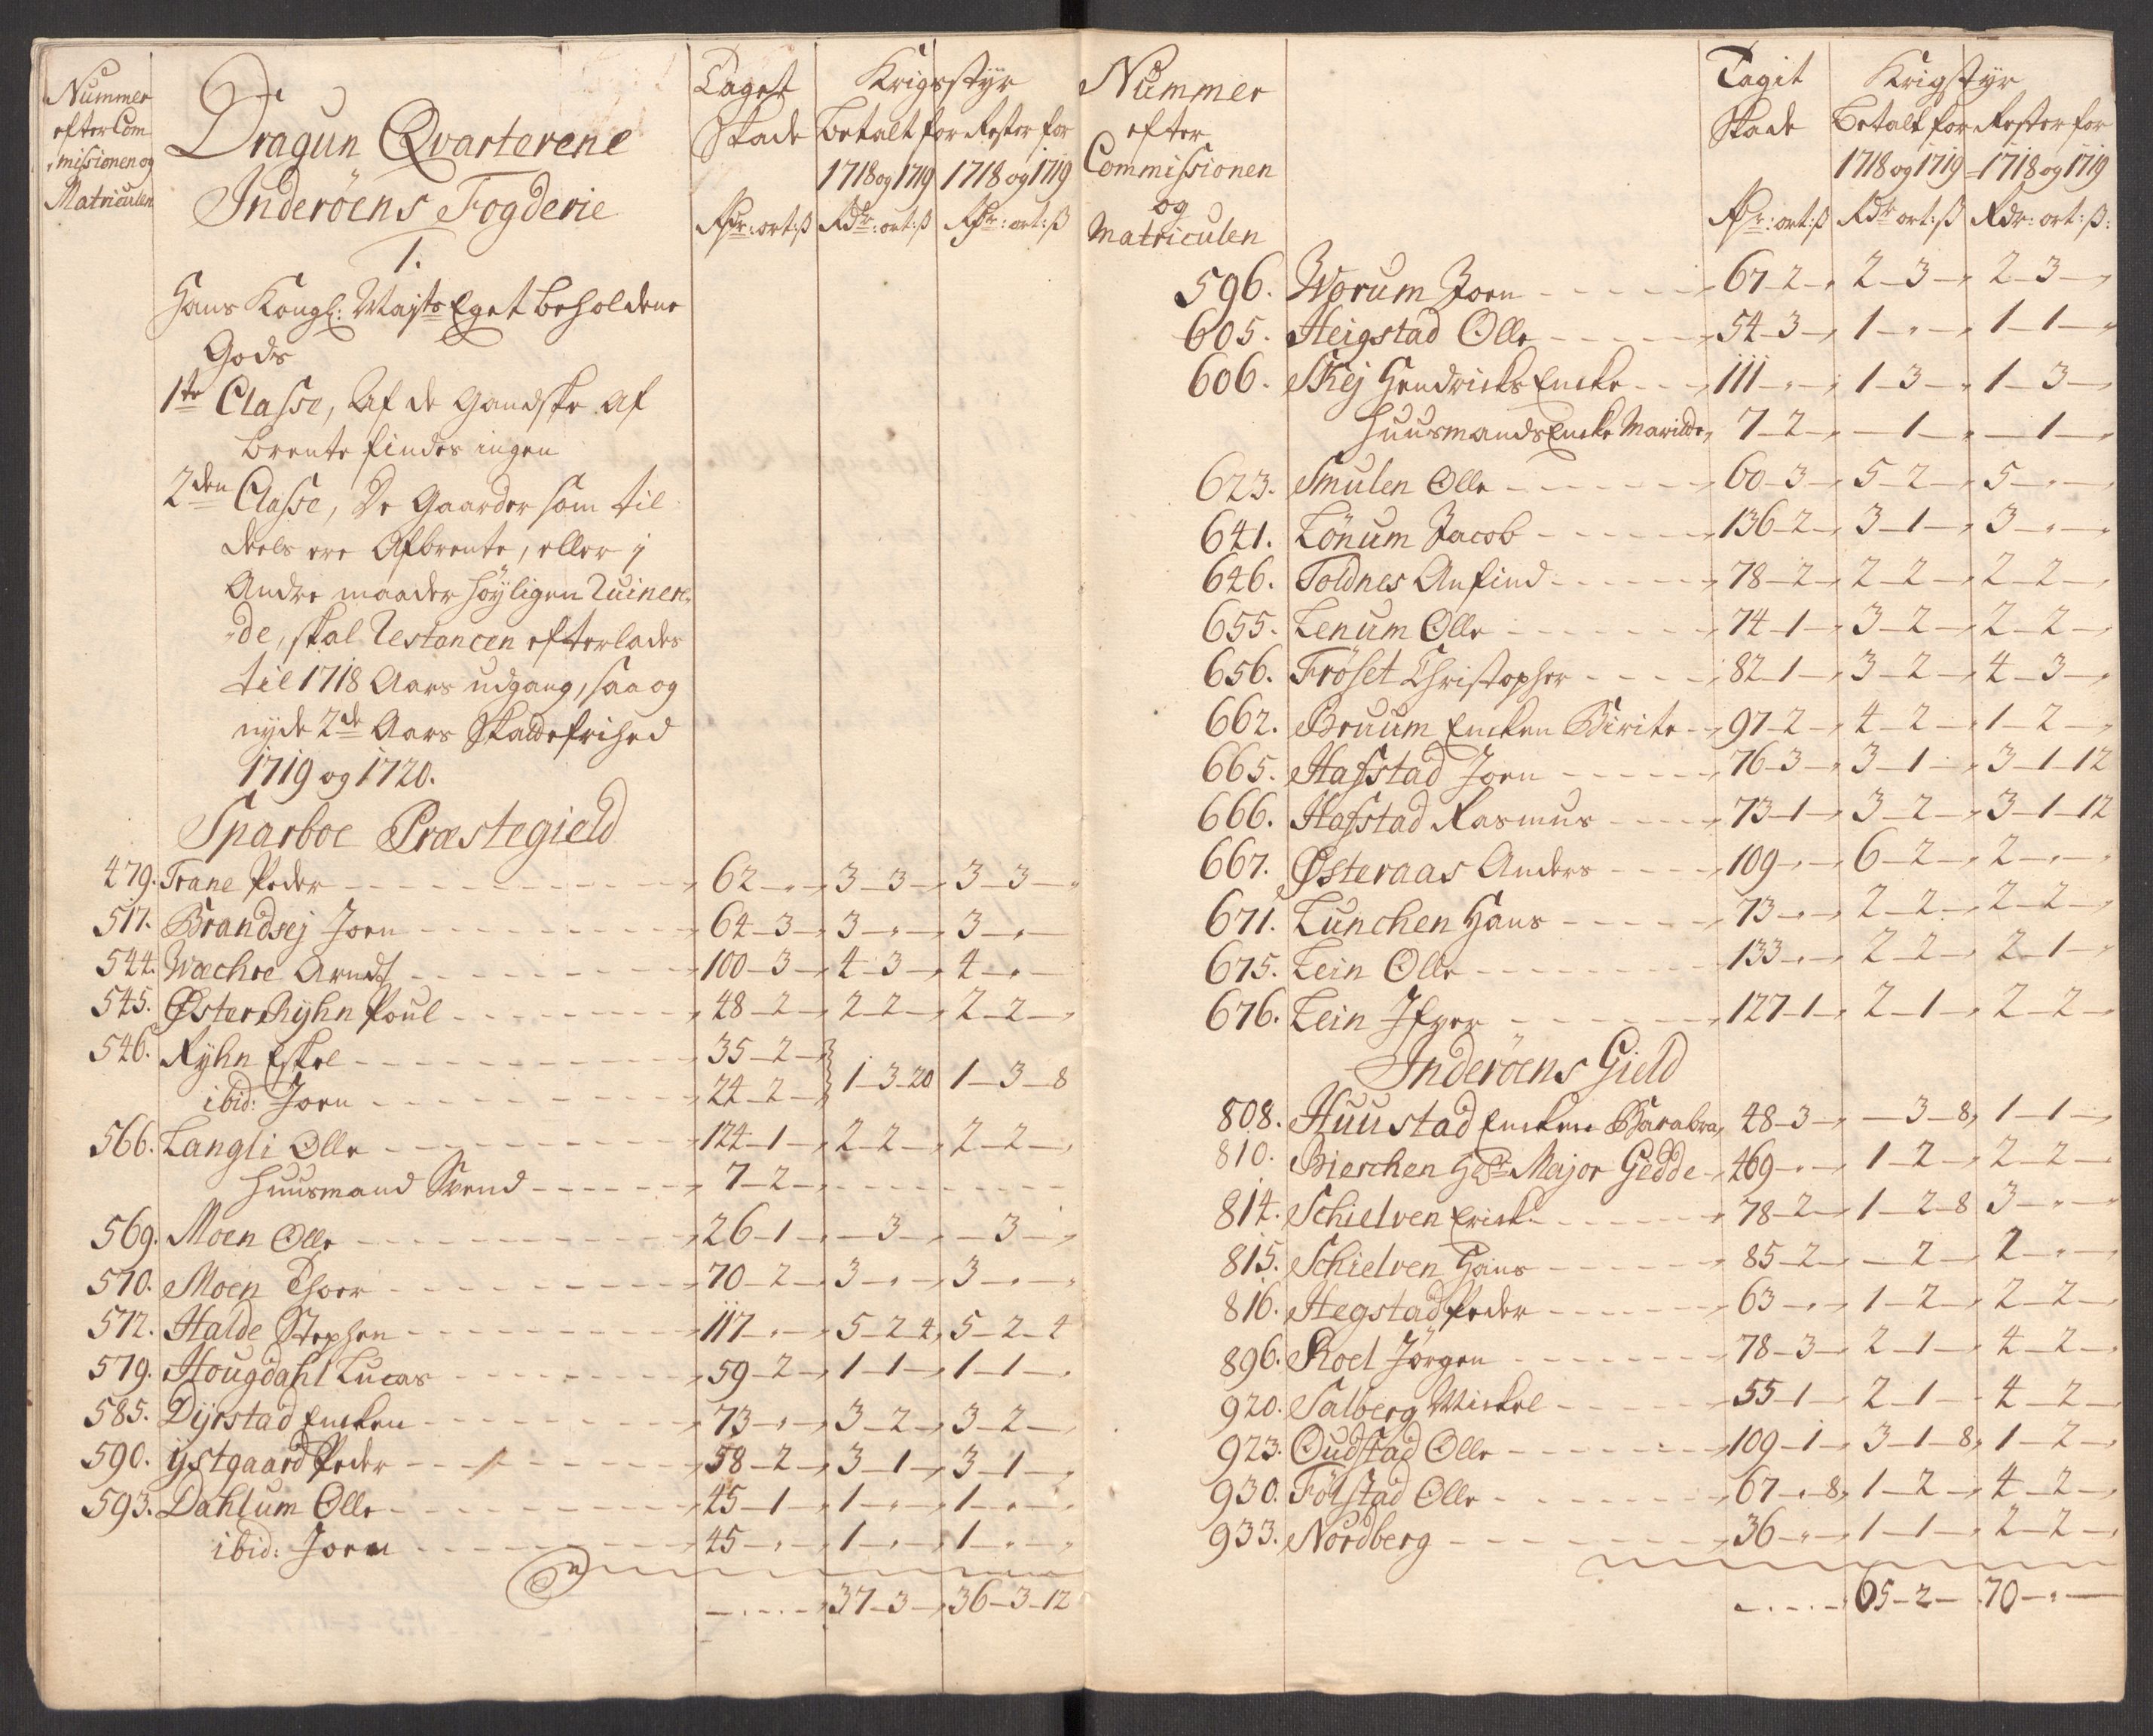 Nummer
efter Com
missionen og
Matriculen
Dragun Qvarterene
Inderöens Fogderie
1.
Taget
Skade
Rdr: ort: ß
Krigsstyr
betalt for Rester for
1718 og 1719 1718 og 1719
Rdr: ort: ß Rdr: ort: ß
Hans Kongl: Mayts Eget beholdene
Gods
1ste Classe, Af de Gandske af
brente findes ingen
2den Classe, De Gaarder som til
deels ere Afbrente, eller i
Andre maader höyligen Ruineri
de, skal Restancen efterlades
til 1718 Aars udgang, saa og
nyde 2de Aars Skattefrihed
1719 og 1720.
Sparboe Præstegield
479. Trane Peder 62 - " - 3 - 3 - 3 - 3 -
517. Brandsej Joen 64 - 3 - 3 - " - 3 - " -
544. Wæchre Arndt 100 - 3 - 4 - 3 - 4 - " -
545. Øster Ryhn Poul 48 - 2 - 2 - 2 - 2 - 2 -
546. Ryhn Eskel 35 - 2 -
ibid: Joen 24 - 2 - 1 - 3 - 20 1 - 3 - 8
566. Langli Olle 124 - 1 - 2 - 2 - 2 - 2 -
Huusmand Svend 7 - 2 -
569. Moen Olle 26 - 1 - - 3 - - 3 -
570. Moen Thoer 70 - 2 - 3 - " - 3 - " -
572. Halde Stephen 117 - " - 5 - 2 - 4 5 - 2 - 4
579. Hougdahl Lucas 59 - 2 - 1 - 1 - 1 - 1 -
585. Dyrstad Encken 73 - " - 3 - 2 - 3 - 2 -
590. ystgaard Peder 58 - 2 - 3 - 1 - 3 - 1 -
593. Dahlum Olle 45 - 1 - 1 - " - 1 - " -
ibid: Joen 45 - " - 1 - " - 1 - " -
37 - 3 - 36 - 3 - 12
Nummer
efter
Commissionen
og
Matriculen
Tagit
Skade
Rdr: ort: ß
Krigstyr
Betalt for Rester for
1718 og 1719 1718 og 1719
Rdr ort: ß Rdr: ort: ß:
596. Worum Joen 67 - 2 - 2 - 3 - 2 - 3 -
605. Heigstad Olle 54 - 3 - 1 - " - 1 - 1 -
606. Skej Hendricks Encke 111 - " - 1 - 3 - 1 - 3 -
Huusmands Encke 7 - 2 - - 1 - - 1 -
623. Smulen Olle 60 - 3 - 5 - 2 - 5 - " -
641. Lönum Jacob 136 - 2 - 3 - 1 - 3 - " -
646. Toldnes Anfind 78 - 2 - 2 - 2 - 2 - 2 -
655. Lenum Olle 74 - 1 - 3 - 2 - 2 - 2 -
656. Fröset Christopher 82 - 1 - 3 - 2 - 4 - 3 -
662. Bruum Encken Birite 97 - 2 - 4 - 2 - 1 - 2 -
665. Hafstad Joen 76 - 3 - 3 - 1 - 3 - 1 - 12
666. Hafstad Rasmus 73 - 1 - 3 - 2 - 3 - 1 - 12
667. Østeraas Anders 109 - " - 6 - 2 - 2 - " -
671. Lunchen Hans 73 - " - 2 - 2 - 2 - 2 -
675. Lein Olle 133 - " - 2 - 2 - 2 - 1 -
676. Lein Ifver 127 - 1 - 2 - 1 - 2 - 2 -
Inderöens Gield
808. Huustad Encken Barabra 48 - 3 - - 3 - 8 1 - 1 -
810. Bierchen Hr Major Gedde 469 - " - 1 - 2 - 2 - 2 -
814. Schielven Erick 78 - 2 - 1 - 2 - 8 3 - " -
815. Schielven Hans 85 - 2 - - 2 - 2 - " -
816. Hegstad Peder 63 - " - 1 - 2 - 2 - 2 -
896. Roel Jörgen 78 - 3 - 2 - 1 - 4 - 2 -
920. Salberg Mickel 55 - 1 - 2 - 1 - 4 - 2 -
923. Oudstad Olle 109 - 1 - 3 - 1 - 8 1 - 2 -
930. Fölstad Olle 67 - " - 8 1 - 2 - 4 - 2 -
933. Nordberg 36 - " - 1 - 1 - 2 - 2 -
65 - 2 - 70 - " -